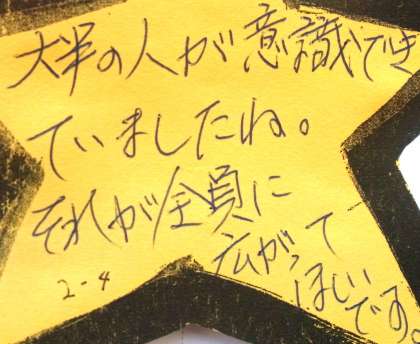 大半の人が意識でき
ていましたね。
それが全員に
広がって
ほしい
です。
2-4